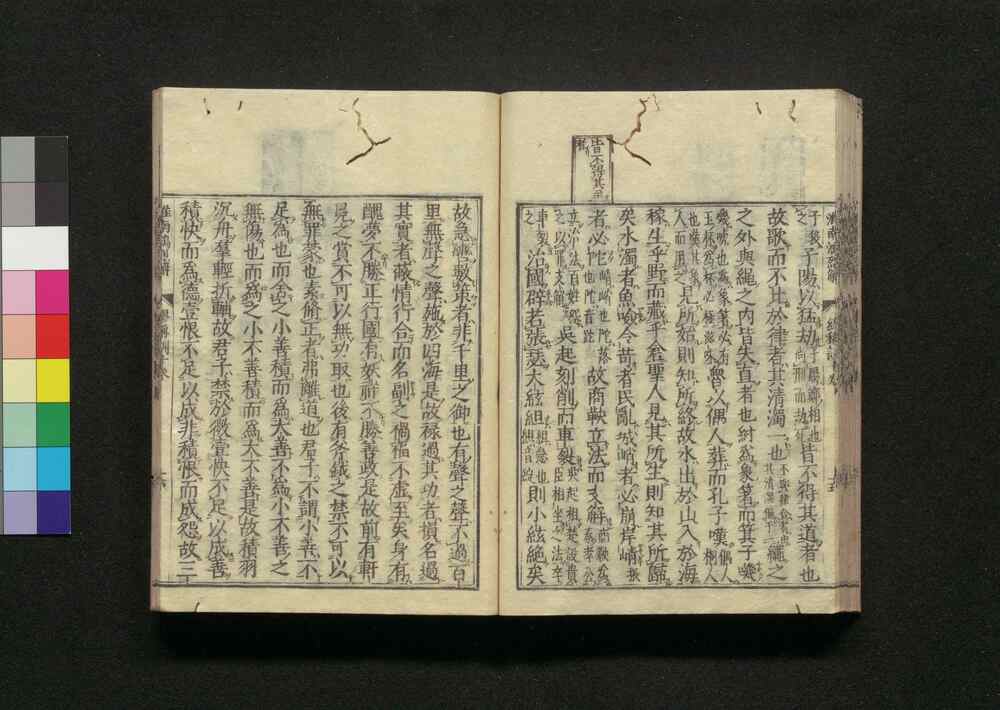 皆不得其至
子陽以猛劫皆不得其道者也
故歌而不比於律者其清濁一也繩之
之外與繩之內皆失直者也紂為象箸而箕子嘰
魯以偶人葬而孔子嘆
見所始則知所終故水出於山入於海
稼生乎野而藏乎倉聖人見其所生則知其所歸
矣水濁者魚噞令苛者民亂城峭者必崩岸崝
者必陀故商鞅立法而支解
吳起刻削而車裂
治國辟若張瑟大絃組則小絃絕矣
故急轡數策者非千里之御也有聲之聲不過百
里無聲之聲施於四海是故祿過其功者損名過
其實者蔽情行合而名副之禍福不虛至矣身有
醜夢不勝正行國有妖祥不勝善政是故前有軒
冕之賞不可以無功取也後有斧鉞之禁不可以
無罪蒙也素脩正者弗離道也君子不謂小善不
足為也而舍之小善積而為大善不為小不善之
無傷也而為之小不善積而為大不善是故積羽
沉舟羣輕折軸故君子禁於微壹快不足以成善
積快而為德壹恨不足以成非積恨而成怨故三